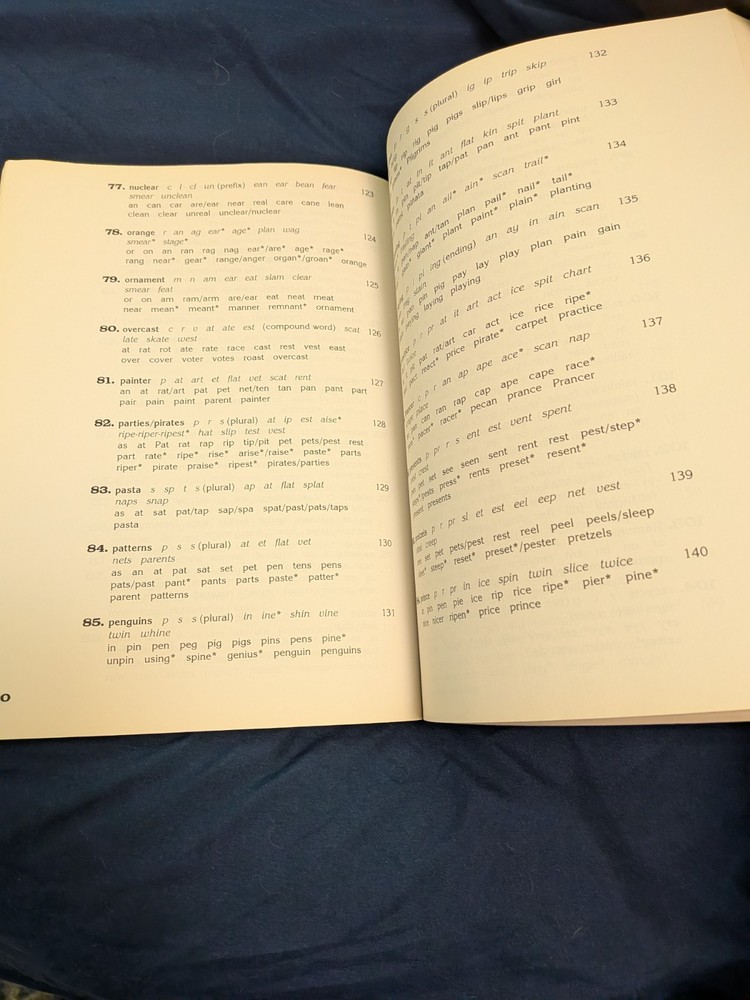 77. nuclear c l cl un (prefix) ean ear bean fear 123
smear unclean
an can car are/ear near real care cane lean
clean clear unreal unclear/nuclear
78. orange r an ag ear* age* plan wag 124
smear* stage*
or on an ran rag nag ear*/are* age* rage*
rang near* gear* range/anger organ*/groan* orange
79. ornament m n am ear eat slam clear 125
smear feat
or on am ram/arm are/ear eat neat meat
near mean* meant* manner remnant* ornament
80. overcast c r v at ate est (compound word) scat 126
late skate west
at rat rot ate rate race cast rest vest east
over cover voter votes roast overcast
81. painter p at art et flat vet scat rent 127
an at rat/art pat pet net/ten tan pan pant part
pair pain paint parent painter
82. parties/pirates p r s (plural) at ip est aise* 128
ripe-riper-ripest* hat slip test vest
as at Pat rat rap rip tip/pit pet pets/pest rest
part rate* ripe* rise* arise*/raise* paste* parts
riper* pirate praise* ripest* pirates/parties
83. pasta s sp t s (plural) ap at flat splat 129
naps snap
as at sat pat/tap sap/spa spat/past/pats/taps
pasta
84. patterns p s s (plural) at et flat vet 130
nets parents
as an at pat sat set pet pen tens pens
pats/past pant* pants parts paste* patter*
parent patterns
85. penguins p s s (plural) in ine* shin vine 131
twin whine
in pin pen peg pig pigs pins pens pine*
unpin using* spine* genius* penguin penguins
0
g s s (plural) ig ip trip skip 132
rip rig pig pigs slip/lips grip girl
Pilgrims
at in it ant flat kin spit plant 133
pat/tap pat pan ant pant pint
piñata
t pl an ail* ain* scan trail* 134
ant/tan plan pail* nail* tail*
giant* plant paint* plain* planting
pl ing (ending) an ay in ain scan 135
stain
pan pin pig pay lay play plan pain gain
laying playing
r pr at it art act ice spit chart 136
pat rat/art car act ice rice ripe*
react* price pirate* carpet practice
c p r an ap ape ace* scan nap 137
place
can ran rap cap ape cape race*
pace* racer* pecan prance Prancer
p pr r s ent est vent spent 138
crest
pet set see seen sent rent rest pest/step*
pests press* rents preset* resent*
presents
p r pr sl et est eel eep net vest 139
creep
set pet pets/pest rest reel peel peels/sleep
steep* reset* preset*/pester pretzels
p r pr in ice spin twin slice twice 140
pin pen pie ice rip rice ripe* pier* pine*
nicer ripen* price prince